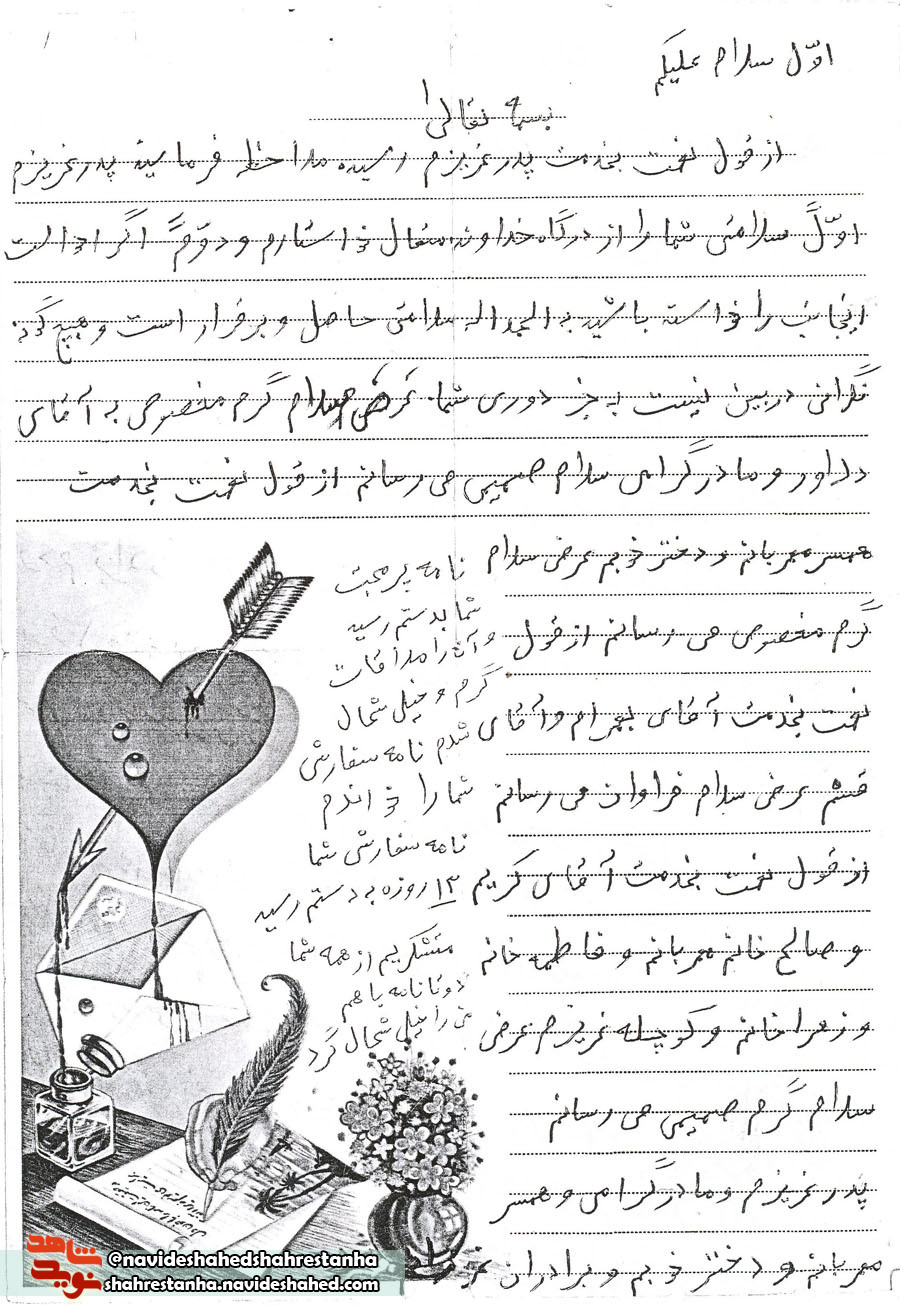 اوّل سلام علیکم
بسمه تعالی
از قول نعمت بخدمت پدر عزیزم رسیده ملاحظه فرمایید پدر عزیزم
اوّلاً سلامتی شما را از درگاه خداوند متعال خواستارم و دوّماً اگر احوالت
اینجانب را خواسته باشید به الحمداله سلامتی حاصل و برقرار است و هیچ گونه
نگرانی در بین نیست به جز دوری شما. عرض سلام گرم مخصوص به آقای
دلاور و مادر گرامی سلام صمیمی می رسانم از قول نعمت بخدمت
همسر مهربانم و دختر خوبم عرض سلام
گرم مخصوص می رسانم از قول
نعمت بخدمت آقای بهرام و آقای
قسم عرض سلام فراوان می رسانم
از قول نعمت بخدمت آقای کریم
و صالح خانم مهربانم و فاطمه خانم
و زهرا خانم و کوچیله عزیزم عرض
سلام گرم صمیمی می رسانم
پدر عزیزم و مادر گرامی و همسر
مهربانم و دختر خوبم و برادران
نامه پر محبت
شما بدستم رسید
و آنرا ملاقات
گرم و خیلی خوشحال
شدم نامه سفارشی
شما را خواندم
نامه سفارشی شما
۱۲ روزه به دستم رسید
متشکریم از همه شما
دوتا نامه باهم
من را خیلی خوشحال کرد
شاهد
نوید
@navideshahedshahrestanha
shahrestanha.navideshahed.com